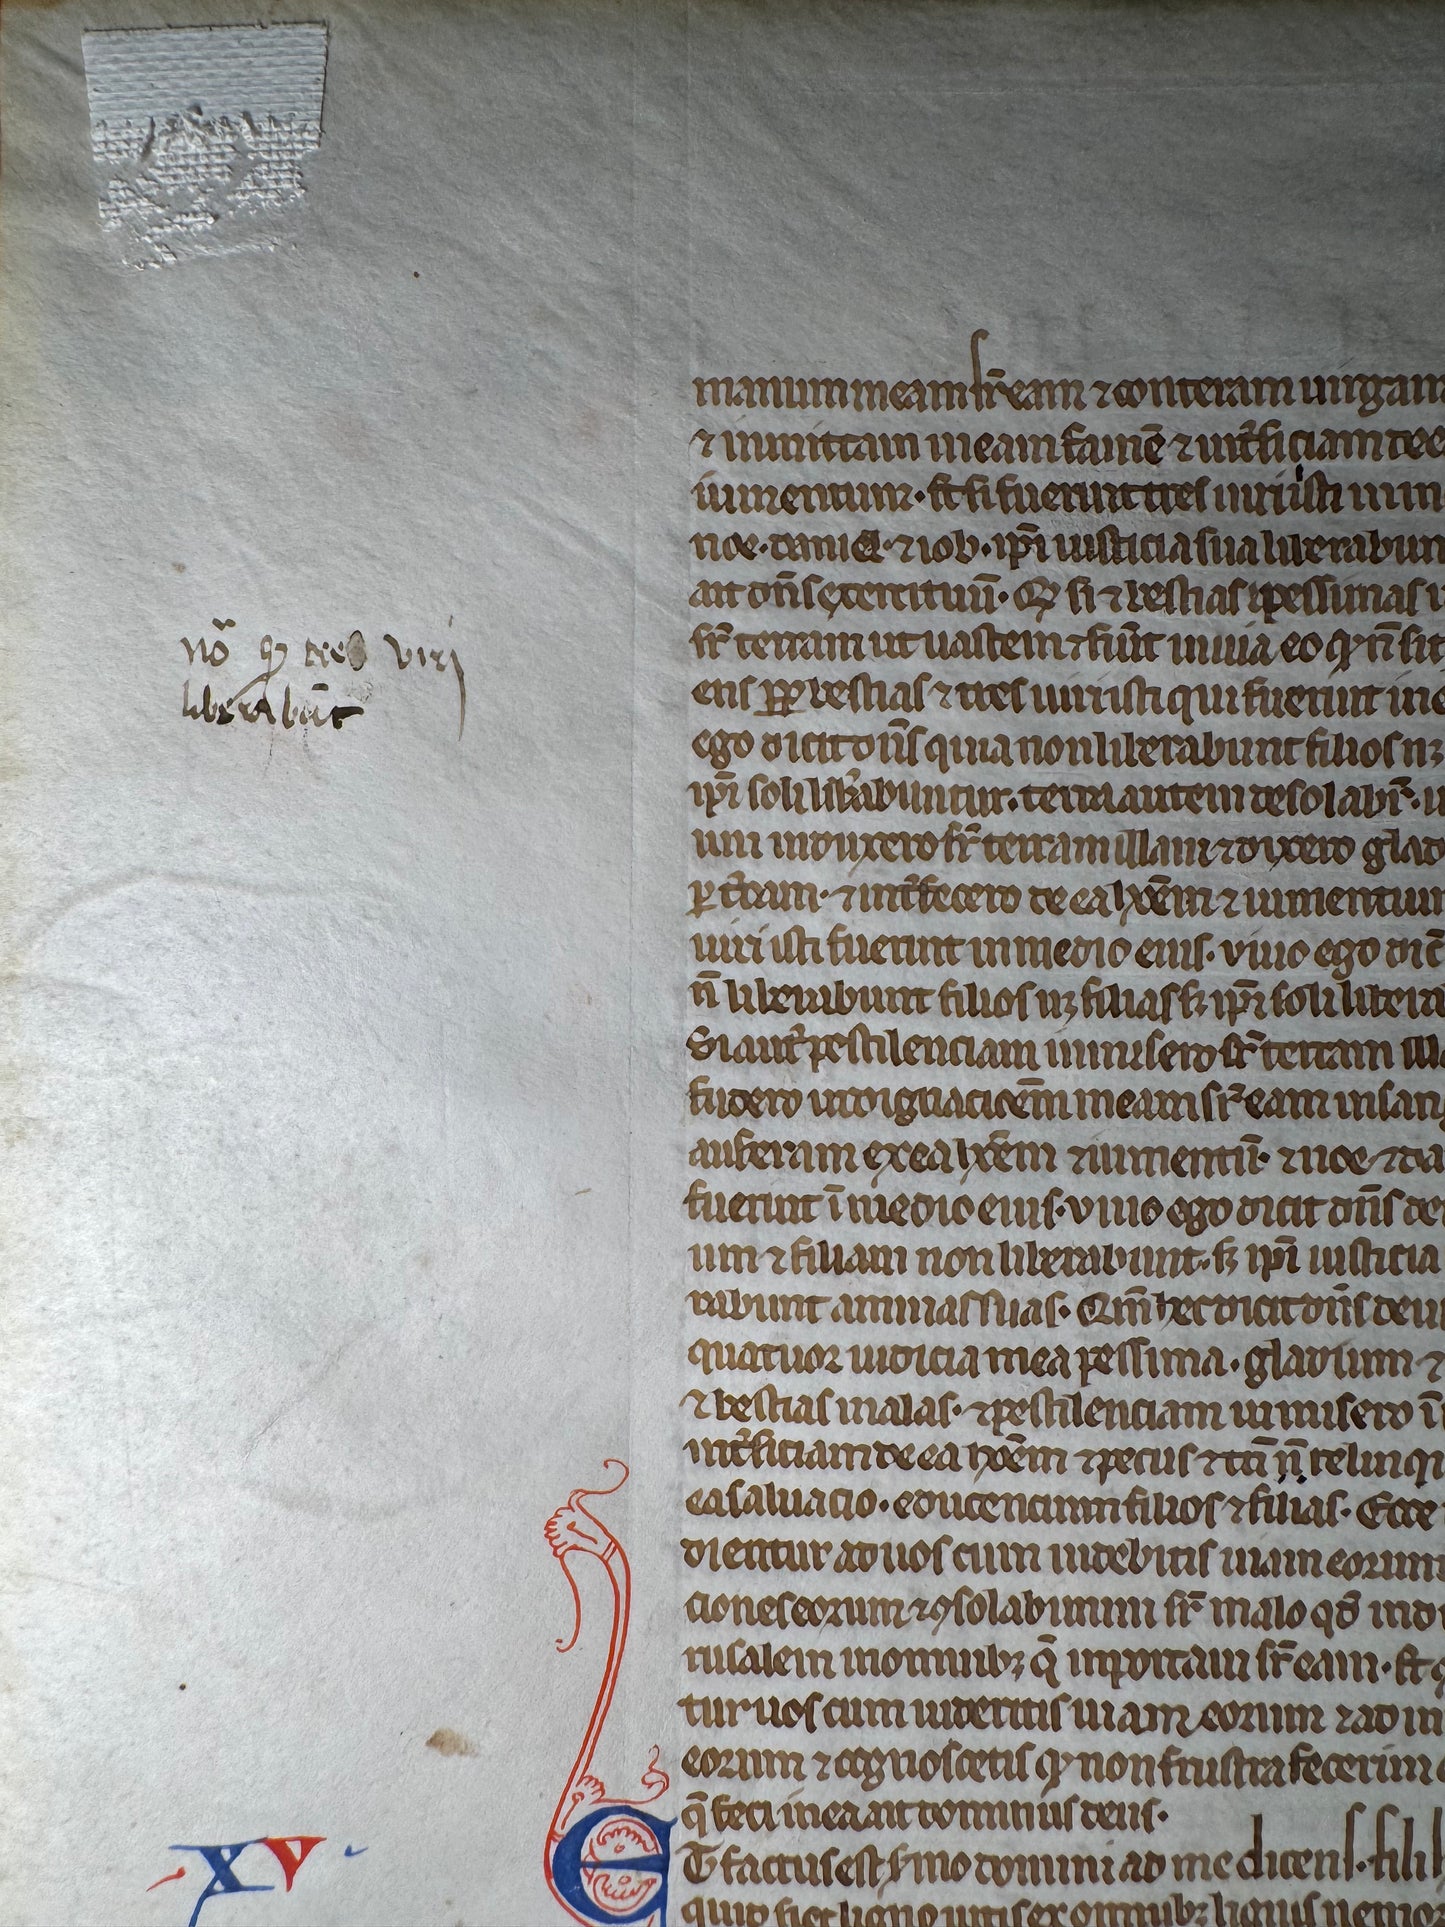 manum meam sr̄ eam ⁊ conteram uirgam
⁊ inmittam in eam famē ⁊ int̄ficiam de e
iumentum· Et si fuerint tres uiri isti in m
noe· daniel· ⁊ iob· ip̄i iusticia sua liberabun
ait dn̄s exercituū· Qď si ⁊ bestias pessimas i
sr̄ terram ut uastem ⁊ fiūt inuia eo qď n̄ sit
ens ꝓpt bestias ⁊ tres uiri isti qui fuerint in e
ego dicit dn̄s quia non liberabunt filios nꝫ
ip̄i soli libabuntur· terra autem desolabit̄· u
um induxero sr̄ terram illam ⁊ dixero glad
ꝑ t̄ram· ⁊ int̄fecero de ea hoīem ⁊ iumentum
uiri isti fuerint in medio eius· viuo ego dic̄
n̄ liberabunt filios nꝫ filias sꝫ ip̄i soli libera
Si aut̄ pestilenciam inmisero sr̄ terram illa
fudero indignacioēm meam sr̄ eam in san
auferam ex ea hoīem ⁊ iumentū· ⁊ noe ⁊ da
fuerint ī medio eius· viuo ego dicit dn̄s de
um ⁊ filiam non liberabunt· sꝫ ip̄i iusticia
rabunt animas suas· Qm̄ hec dicit dn̄s deu
quatuor iudicia mea pessima· gladium ⁊
⁊ bestias malas· ⁊ pestilenciam inmisero ī
int̄ficiam de ea hoīem ⁊ pecus ⁊ tn̄ n̄ relinq
ea saluacio· educencium filios ⁊ filias· Ecce
dientur ad uos cum uidebitis uiam eorum
ciones eorum ⁊ ꝯsolabimini sr̄ malo qď ind
rusalem in omnibꝫ q̄ inportaui sr̄ eam· Et
tur uos cum uideritis uiam eorum ⁊ ad in
eorum ⁊ cognoscetis qď non frustra fecerim
q̄ feci in ea ait dominus deus·
ET factus est smo domini ad me dicens· fili h
quid fiet ligno uitis ex omnibꝫ lignis nemor
nō qď tres virj
liberabūt
XV